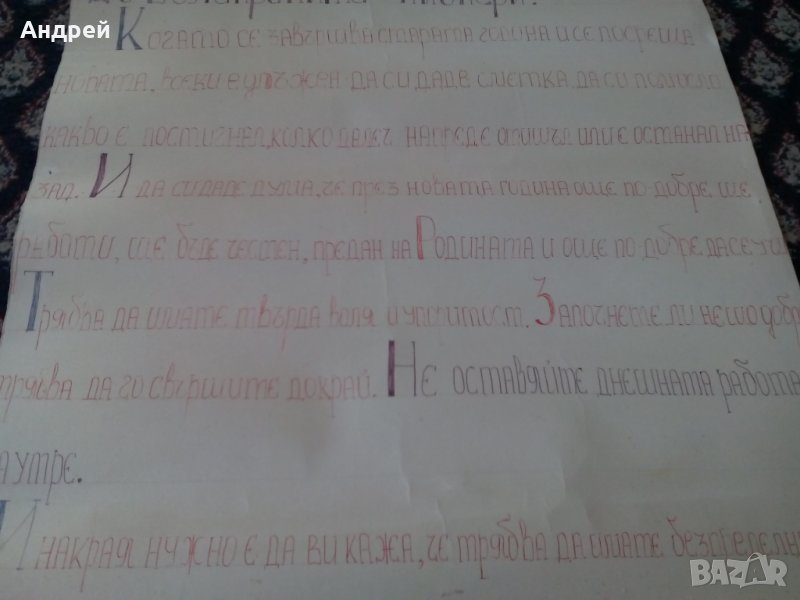 Андрей
пионери!
Когато се завършва старата година и се посреща
новата, всеки е длъжен да си даде сметка, да си помисли
какво е постигнал, колко далеч напред е отишъл или е останал на
зад. И да си даде дума, че през новата година още по-добре ще
работи, ще бъде честен, предан на Родината и още по-добре да се учи
Трябва да имате твърда воля и упоритост. Започнете ли нещо добр
трябва да го свършите докрай. Не оставяйте днешната работа
а утре.
И накрая нужно е да ви кажа, че трябва да имате безпределн
BAZAR